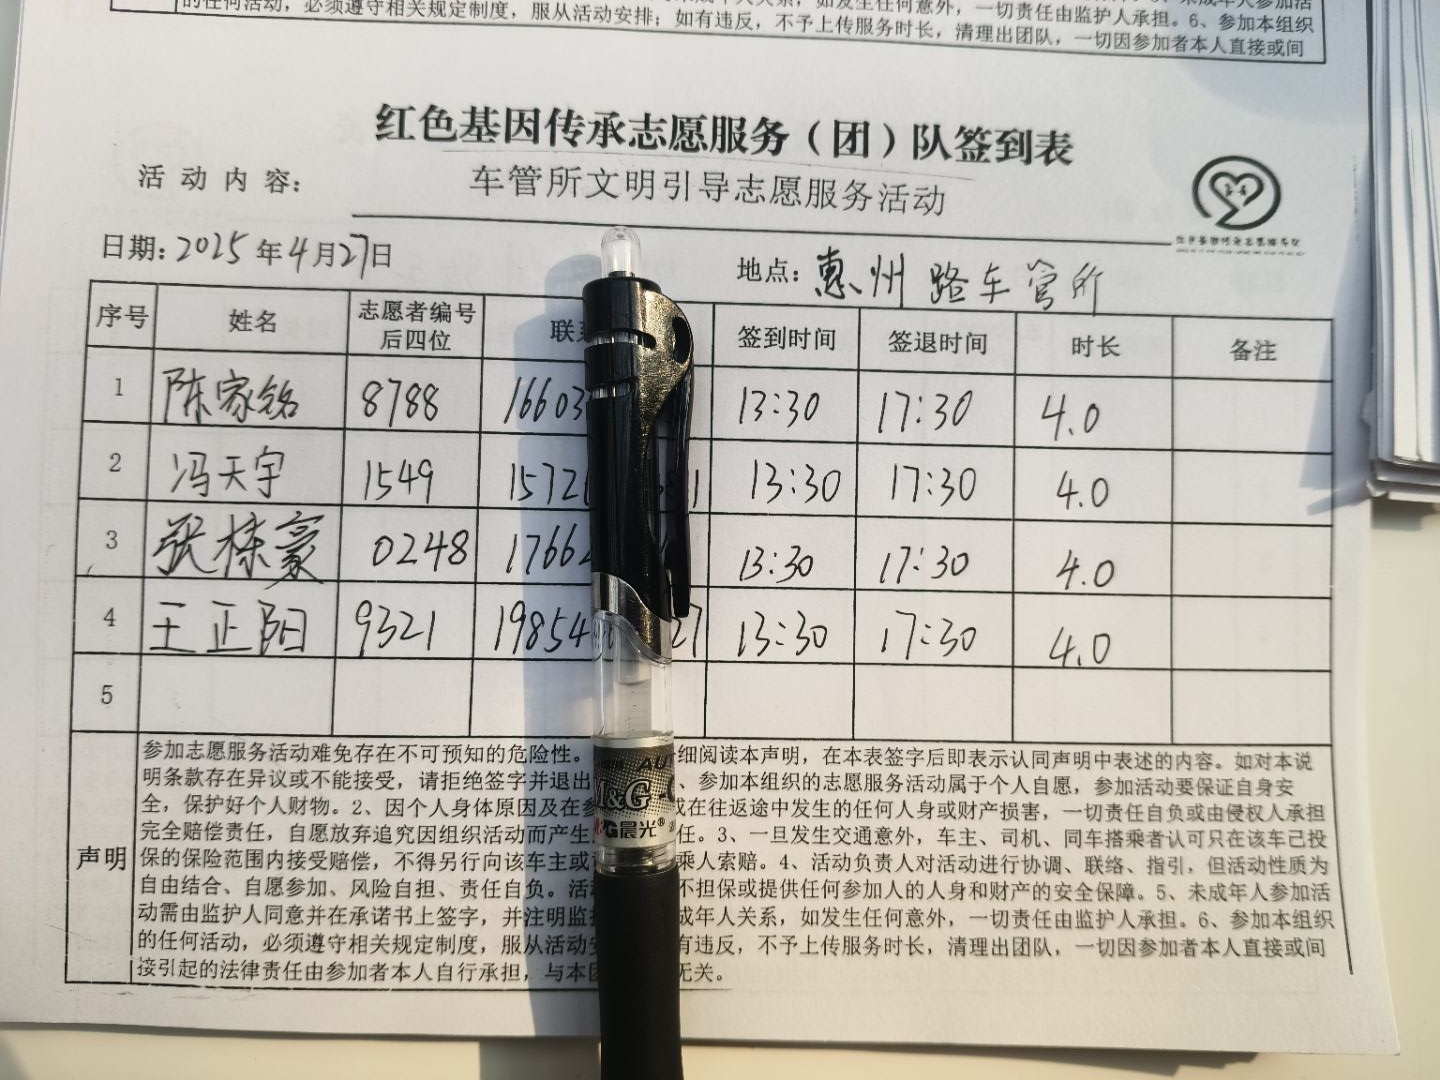 的任何活动，必须遵守相关规定制度，服从活动安排；如有违反，不予上传服务时长，清理出团队，一切因参加者本人直接或间
红色基因传承志愿服务（团）队签到表
活动内容： 车管所文明引导志愿服务活动
日期：2025年4月27日 地点：惠州路车管所
序号 姓名 志愿者编号后四位 联 签到时间 签退时间 时长 备注
1 陈家铭 8788 16603 13:30 17:30 4.0
2 冯天宇 1549 15721 1 13:30 17:30 4.0
3 张栋豪 0248 1766 13:30 17:30 4.0
4 王正阳 9321 19854 27 13:30 17:30 4.0
5
声明
参加志愿服务活动难免存在不可预知的危险性。 细阅读本声明，在本表签字后即表示认同声明中表述的内容。如对本说
明条款存在异议或不能接受，请拒绝签字并退出 、参加本组织的志愿服务活动属于个人自愿，参加活动要保证自身安
全，保护好个人财物。2、因个人身体原因及在参 或在往返途中发生的任何人身或财产损害，一切责任自负或由侵权人承担
完全赔偿责任，自愿放弃追究因组织活动而产生 任。3、一旦发生交通意外，车主、司机、同车搭乘者认可只在该车已投
保的保险范围内接受赔偿，不得另行向该车主或 乘人索赔。4、活动负责人对活动进行协调、联络、指引，但活动性质为
自由结合、自愿参加、风险自担、责任自负。活 不担保或提供任何参加人的人身和财产的安全保障。5、未成年人参加活
动需由监护人同意并在承诺书上签字，并注明监 成年人关系，如发生任何意外，一切责任由监护人承担。6、参加本组织
的任何活动，必须遵守相关规定制度，服从活动 有违反，不予上传服务时长，清理出团队，一切因参加者本人直接或间
接引起的法律责任由参加者本人自行承担，与本 无关。
M&G
M&G晨光®